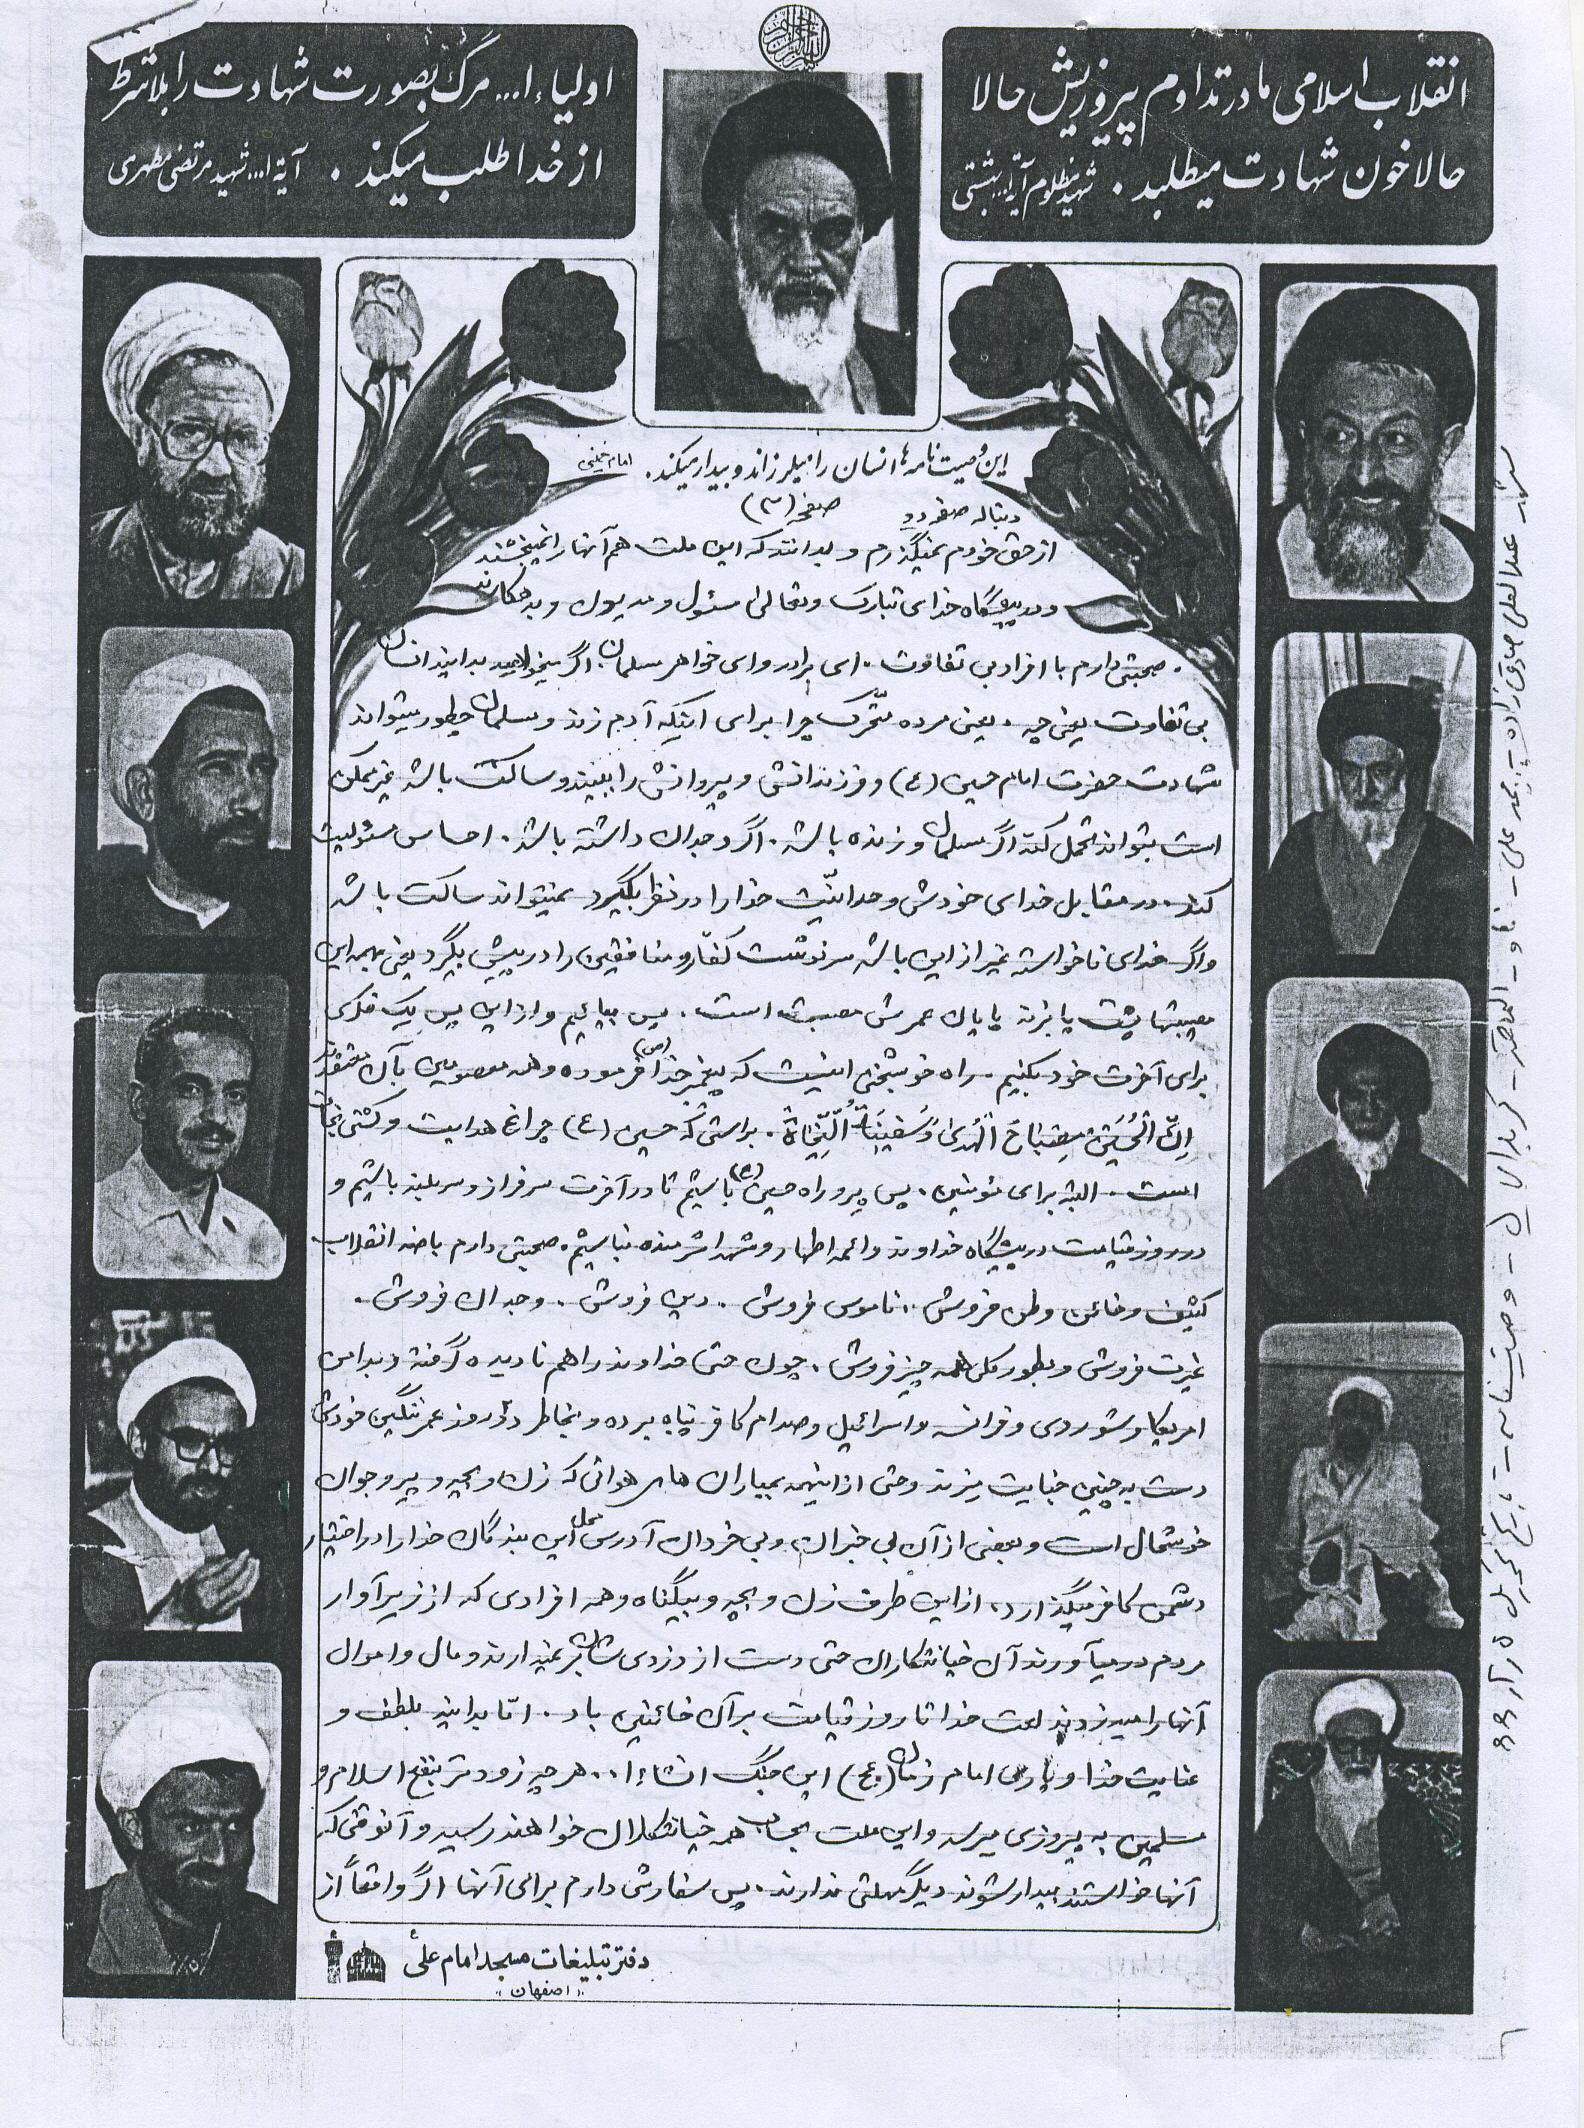 انقلاب اسلامی ما در تداوم پیروزیش حالا
حالا خون شهادت میطلبد. شهید مظلوم آیة ا... بهشتی
اولیاء ا... مرگ بصورت شهادت را بلاشرط
از خدا طلب میکند. آیة ا... شهید مرتضی مطهری
این وصیت نامه ها انسان را میلرزاند و بیدار میکند. امام خمینی
دنباله صفحه دو صفحه (۳)
از حق خودم نمیگذرم و بدانند که این ملت هم آنها را نمیبخشند
و در پیشگاه خدای تبارک و تعالی مسئول و مدیون و بدهکارند
. صحبتی دارم با افراد بی تفاوت. ای برادر و ای خواهر مسلمان اگر میخواهید بدانید انسان
بی تفاوت یعنی چه. یعنی مرده متحرک چرا برای اینکه آدم زنده و مسلمان چطور میتواند
شهادت حضرت امام حسین (ع) و فرزندانش و پیروانش را ببیند و ساکت باشد غیر ممکن
است بتواند تحمل کند اگر مسلمان و زنده باشد. اگر وجدان داشته باشد. احساس مسئولیت
کند. در مقابل خدای خودش وحدانیّت خدا را در نظر بگیرد نمیتواند ساکت باشد
و اگر خدای ناخواسته غیر از این باشد سرنوشت کفّار و منافقین را در پیش بگیرد یعنی بهمه این
مصیبتها پشت پا بزند پایان عمرش مصیبت است. پس بیائیم و از این پس یک فکری
برای آخرت خود بکنیم. راه خوشبختی اینست که پیغمبر خدا (ص) فرموده و همه معصومین بآن معتقدند
اِنَّ الْحُسَیْنَ مِصْبَاحُ الْهُدیٰ وَ سَفینَةُ الْنِّجَاة. براستی که حسین (ع) چراغ هدایت و کشتی نجات
است. البته برای مؤمنین. پس پیرو راه حسین (ع) باشیم تا در آخرت سرفراز و سربلند باشیم و
در روز قیامت در پیشگاه خداوند و ائمه اطهار و شهدا شرمنده نباشیم. صحبتی دارم با ضد انقلاب
کثیف و خائن وطن فروش. ناموس فروش. دین فروش. وجدان فروش.
غیرت فروش و بطور کلی همه چیز فروش. چون حتی خداوند را هم نادیده گرفته و بدامن
امریکا و شوروی و فرانسه و اسرائیل و صدام کافر پناه برده و بخاطر دو روز عمر ننگین خودش
دست به چنین جنایت میزند و حتی از اینهمه بمباران های هوائی که زن و بچه و پیر و جوان
خوشحال است و بعضی از آن بی خبران و بی خردان آدرس محل این بندگان خدا را در اختیار
دشمن کافر میگذارد، از این طرف زن و بچه و بیگناه و همه افرادی که از زیر آوار
مردم در میآورند آن خیانتکاران حتی دست از دزدی شان بر نمیدارند و مال و اموال
آنها را میدزدند لعنت خدا تا روز قیامت بر آن خائنین باد. امّا بدانید بلطف و
عنایت خدا و یاری امام زمان (عج) این جنگ انشاء ا.. هر چه زودتر بنفع اسلام و
مسلمین به پیروزی میرسد و این ملت بحساب همه خیانتکاران خواهند رسید و آنوقتی که
آنها خواستند بیدار شوند دیگر مهلتی ندارند. پس سفارشی دارم برای آنها اگر واقعاً از
دفتر تبلیغات مسجد امام علیؑ
"اصفهان"